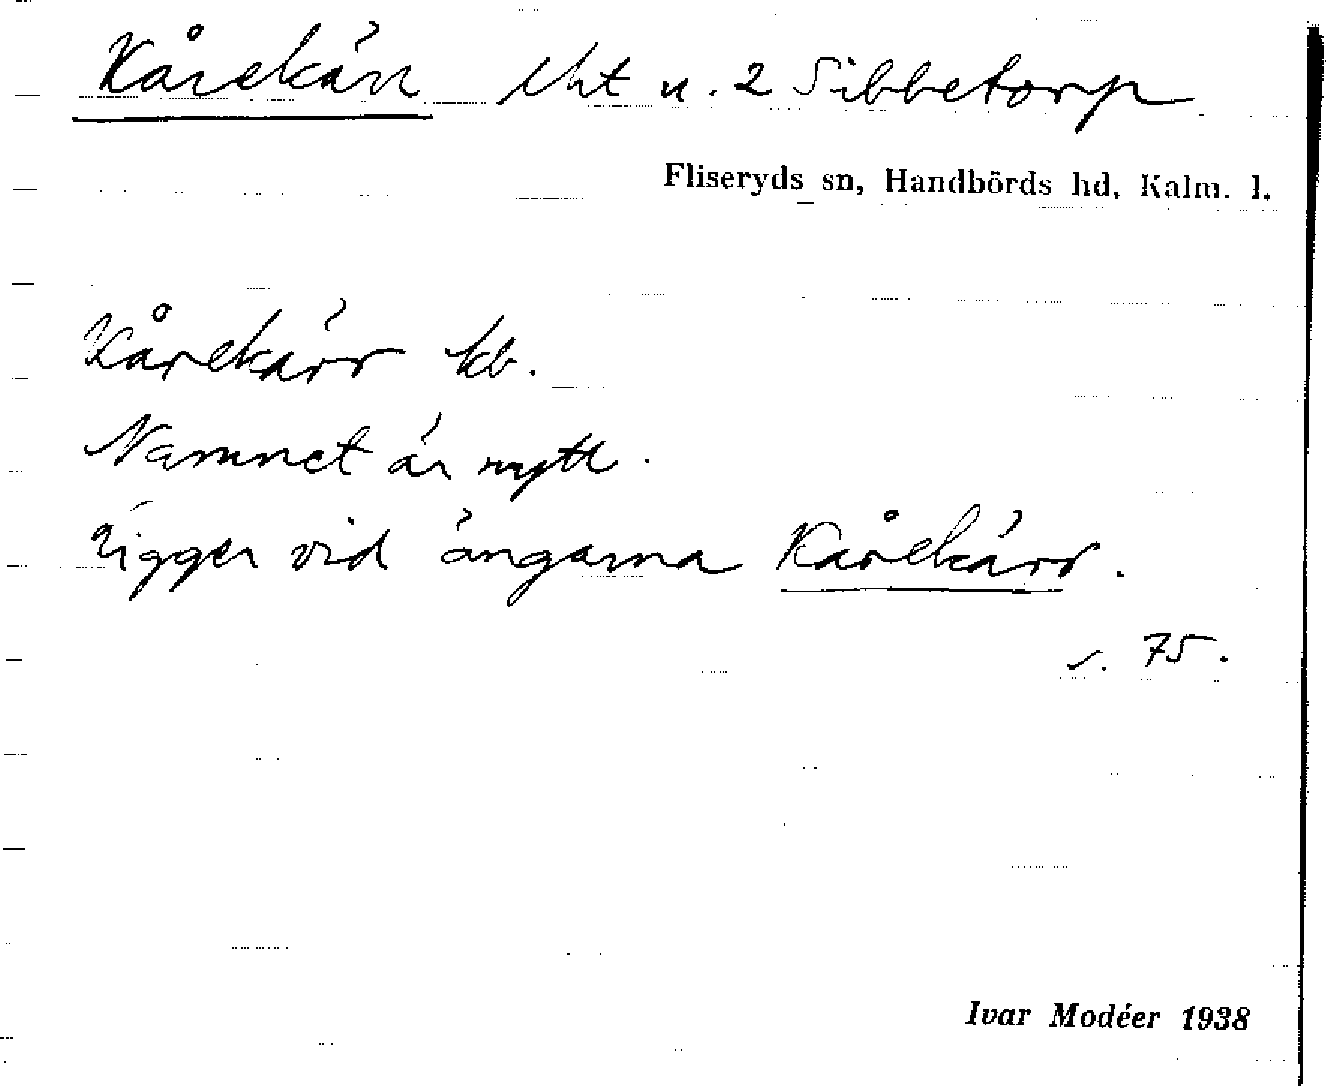 Kårekärr Uht u. 2 Sibbetorp
Fliseryds sn, Handbörds hd, Kalm. l.
Kårekärr kb.
Namnet är nytt.
Ligger vid ängarna Kårekärr.
s. 75.
Ivar Modéer 1938